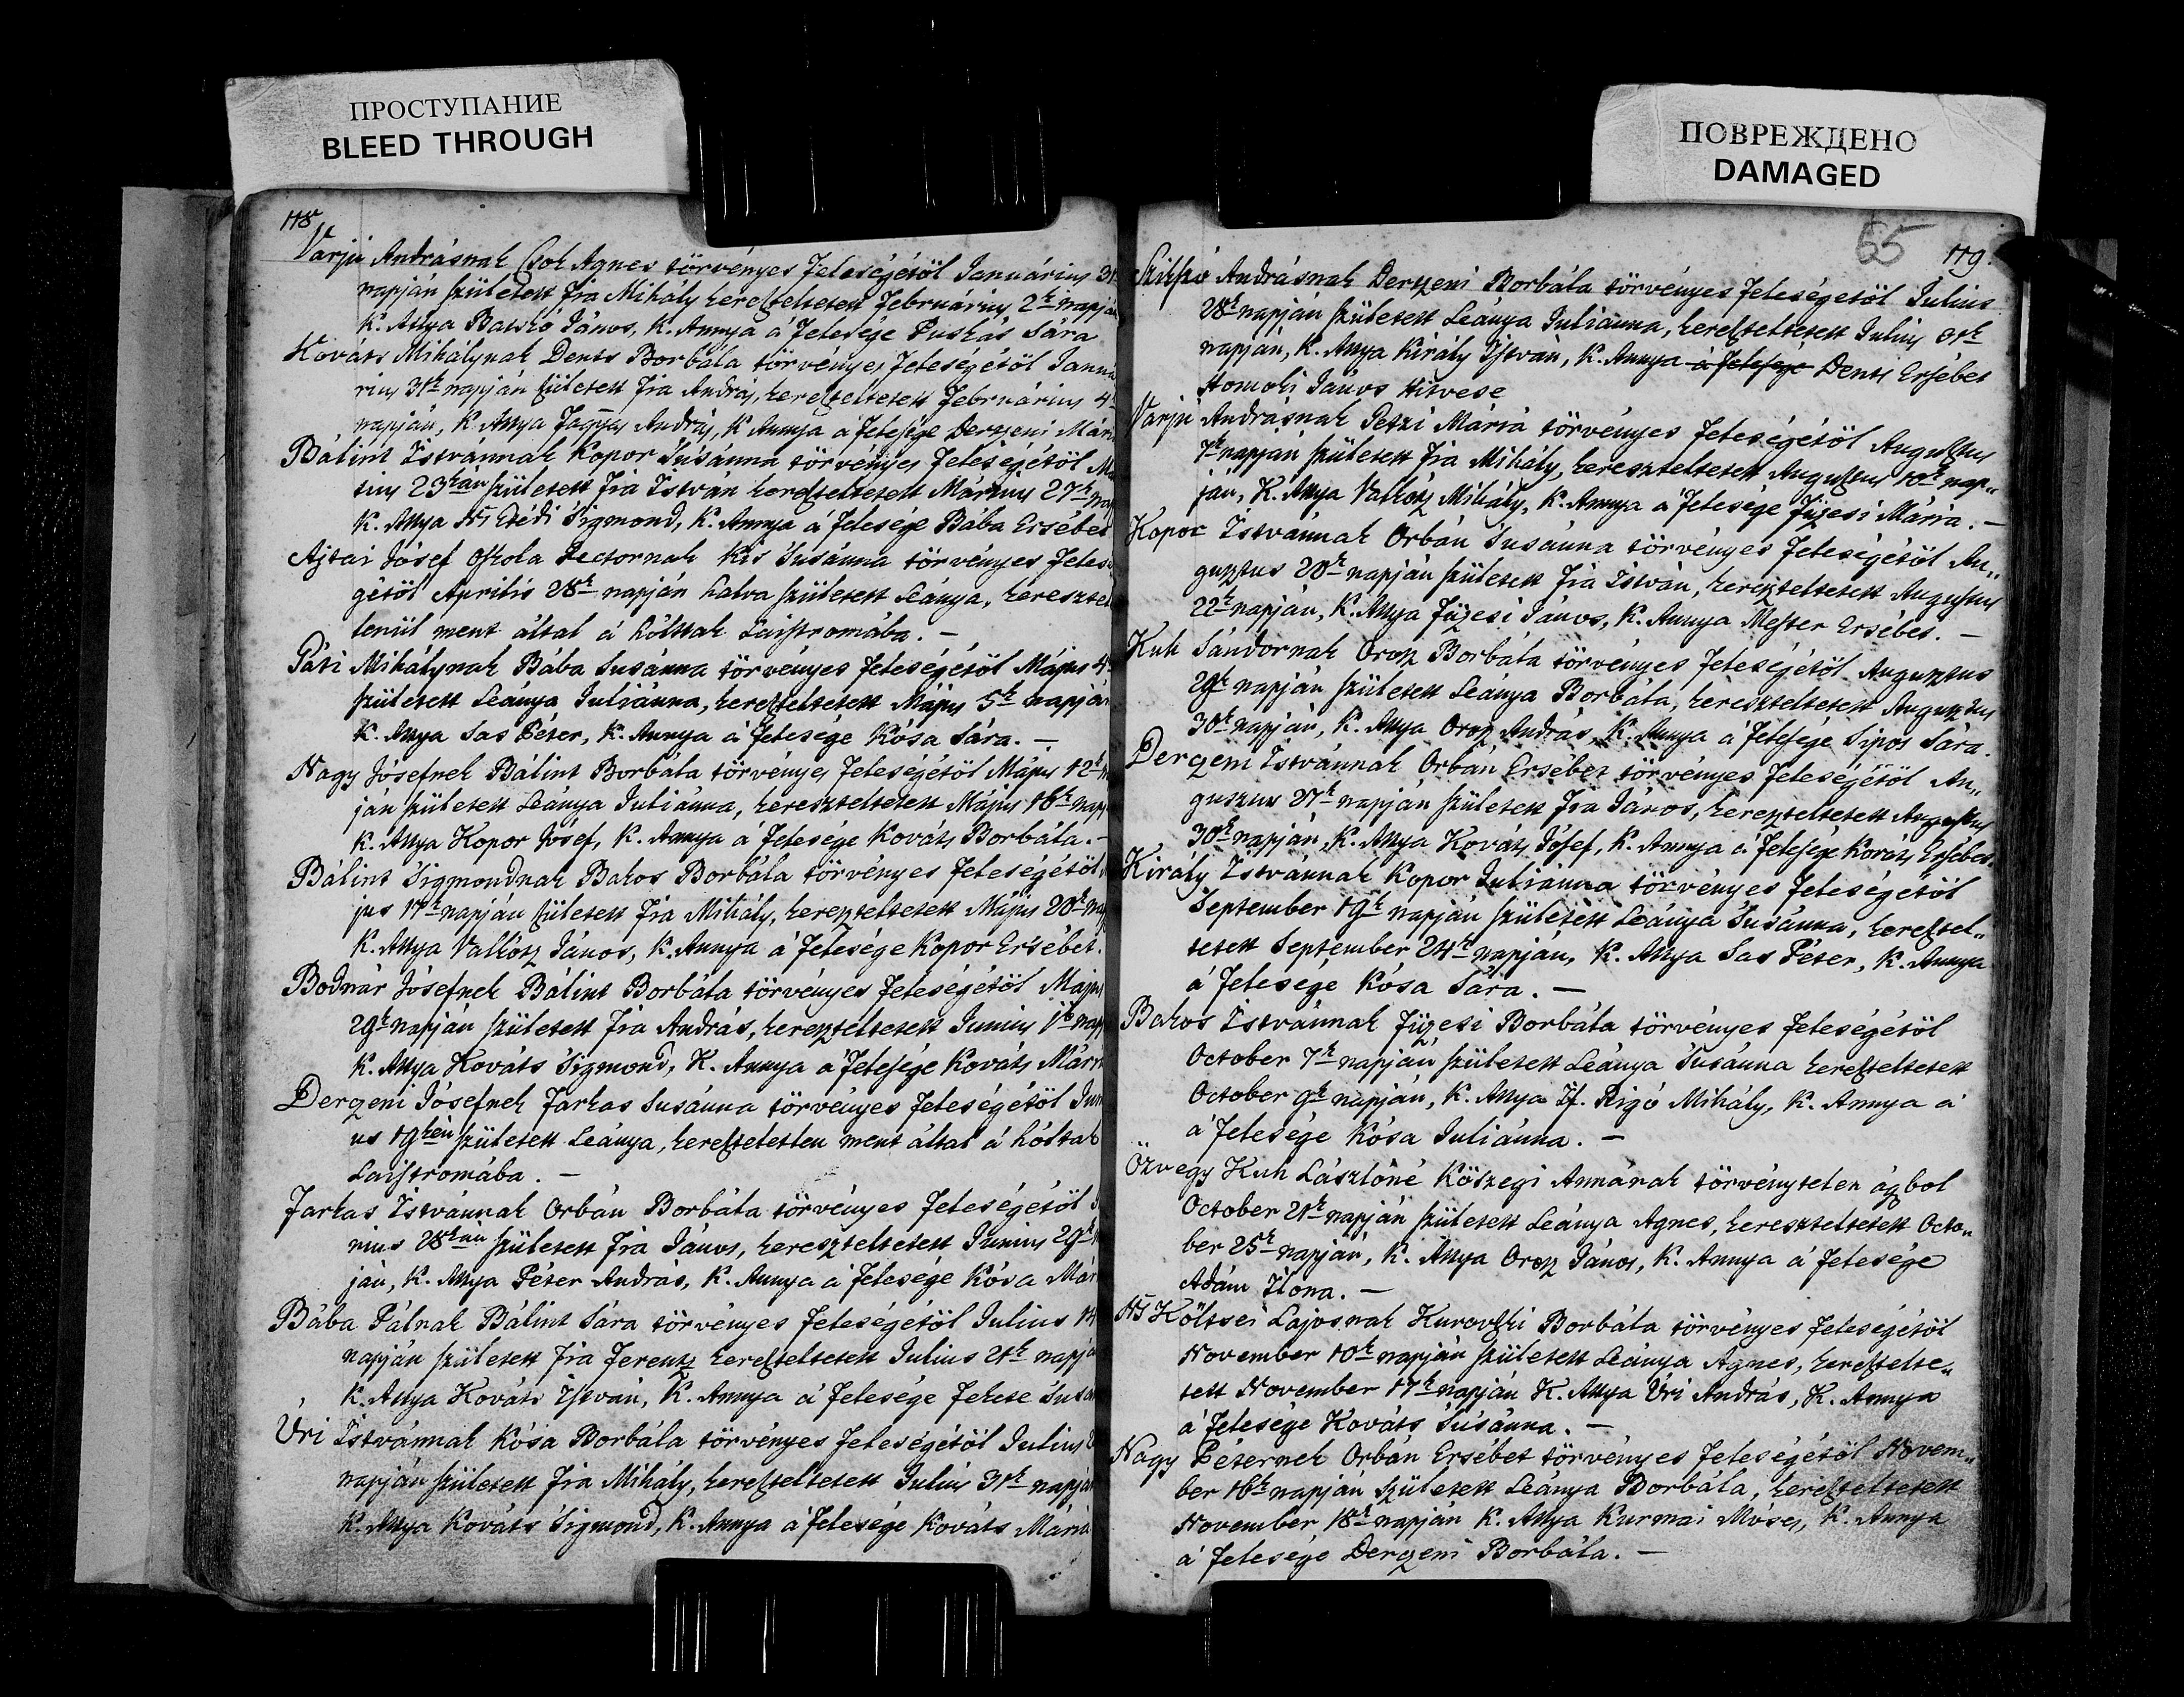 ПРОСТУПАНИЕ
BLEED THROUGH
ПОВРЕЖДЕНО
DAMAGED
118
Varjú Andrásnak Csok Agnes törvényes feleségétöl Januárius 31
napján született fia Mihály kereszteltetett Februárius 2k napján
K. Attya Batskó János, K. Annya á felesége Puskás Sára
Kováts Mihálynak Dents Borbála törvényes feleségétöl Janua
rius 31k napján született fia András, kereszteltetett Februárius 4k
napján, K. Attya András, K Annya á felesége Derzseni Mári
Bálint Istvánnak Kopor Susánna törvényes feleségétöl Már
tius 23kán született fia Istvan kereszteltetett Mártius 27k nap
K. Attya Ns Etédi Sigmond, K. Annya á felesége Bába Ersébet
Ajtai Jósef Oskola Rectornak Kis Susánna törvényes felesé
gétöl Aprilis 28k napján halva született Leánya, keresztel
lenül ment által á hólttak Laistromába. —
Páti Mihálynak Bába Susánna törvényes feleségétöl Május 4k
született Leánya Juliánna, kereszteltetett Május 5k napján
K. Attya Sas Péter, K. Annya á felesége Kósa Sára. —
Nagy Jósefnek Bálint Borbála törvényes feleségétöl Május 12k
ján született Leánya Juliánna, kereszteltetett Május 16k nap
K. Attya Kopor Jósef, K. Annya á felesége Kováts Borbála. —
Bálint Sigmondnak Bakos Borbála törvényes feleségétöl
jus 17k napján született fia Mihály, kereszteltetett Május 20k nap
K. Attya Valkósz János, K. Annya á felesége Kopor Ersébet.
Bodnár Jósefnek Bálint Borbála törvényes feleségétöl Május
29k napján született fia András, kereszteltetett Junius 1k nap
K. Attya Kováts Sigmond, K. Annya á felesége Kováts Mári
Derzseni Jósefnek Farkas Susánna törvényes feleségétöl Juni
us 19kén született Leánya, keresztetetlen ment által á hóltak
Laistromába. —
Farkas Istvánnak Orbán Borbála törvényes feleségétöl
nius 28kán született fia János, kereszteltetett Junius 29k
ján, K. Attya Péter András, K. Annya á felesége Kósa Már
Bába Pálnak Bálint Sára törvényes feleségétöl Julius 14
napján született fia Ferentz kereszteltetett Julius 21k napjá
K. Attya Kováts István, K. Annya á felesége Fekete Susá
Úri Istvánnak Kósa Borbála törvényes feleségétöl Julius
napján született fia Mihály, kereszteltetett Julius 31k napján
K. Attya Kováts Sigmond, K. Annya á felesége Kováts Mária
65 119.
Szikszó Andrásnak Derzseni Borbála törvényes feleségétöl Julius
28k napján született Leánya Julianna, kereszteltetett Julius 31k
napján, K. Attya Király István, K. Annya á felesége Dents Ersébet
Homoki János Hitvese
Varjú Andrásnak Petzi Mária törvényes feleségétöl Augustus
7k napján született fia Mihály, kereszteltetett Augustus 10k nap„
ján, K. Attya Valkósz Mihály, K. Annya á felesége Füzesi Mária. —
Kopor Istvánnak Orbán Susánna törvényes feleségétöl Au„
gusztus 20k napján született fia István, kereszteltetett Augustus
22k napján, K. Attya Füzesi János, K. Annya Mester Ersébet. —
Kuh Sándornak Orosz Borbála törvényes feleségétöl Augusztus
29k napján született Leánya Borbála, kereszteltetett Augusztus
30k napján, K. Attya Orosz András, K. Annya á felesége Sipos Sára.
Derzseni Istvánnak Orbán Ersébet törvényes feleségétöl Au„
gusztus 27k napján született fia János, kereszteltetett Augustus
30k napján, K. Attya Kováts Jósef, K. Annya á felesége Kováts Ersébet
Király Istvánnak Kopor Juliánna törvényes feleségétöl
September 19k napján született Leánya Susánna, keresztel„
tetett September 24k napján, K. Attya Sas Péter, K. Annya
á felesége Kósa Sára. —
Bakos Istvánnak Füzesi Borbála törvényes feleségétöl
October 7k napján született Leánya Susánna kereszteltetett
October 9k napján, K. Attya If. Rigó Mihály, K. Annya á
á felesége Kósa Juliánna. —
Özvegy Kuh Lászlóné Köszegi Annának törvénytelen ágbol
October 21k napján született Leánya Agnes, kereszteltetett Octo„
ber 25k napján, K. Attya Orosz János, K. Annya á felesége
Adám Ilona. —
Ns Költsei Lajosnak Kurovszki Borbála törvényes feleségétöl
November 10k napján született Leánya Agnes, keresztelte„
tett November 17k napján K. Attya Úri András, K. Annya
á felesége Kováts Susánna. —
Nagy Péternek Orbán Ersébet törvényes feleségétöl Novem„
ber 16k napján született Leánya Borbála, kereszteltetett
November 18k napján K. Attya Kurmai Móses, K. Annya
á felesége Derzseni Borbála. —